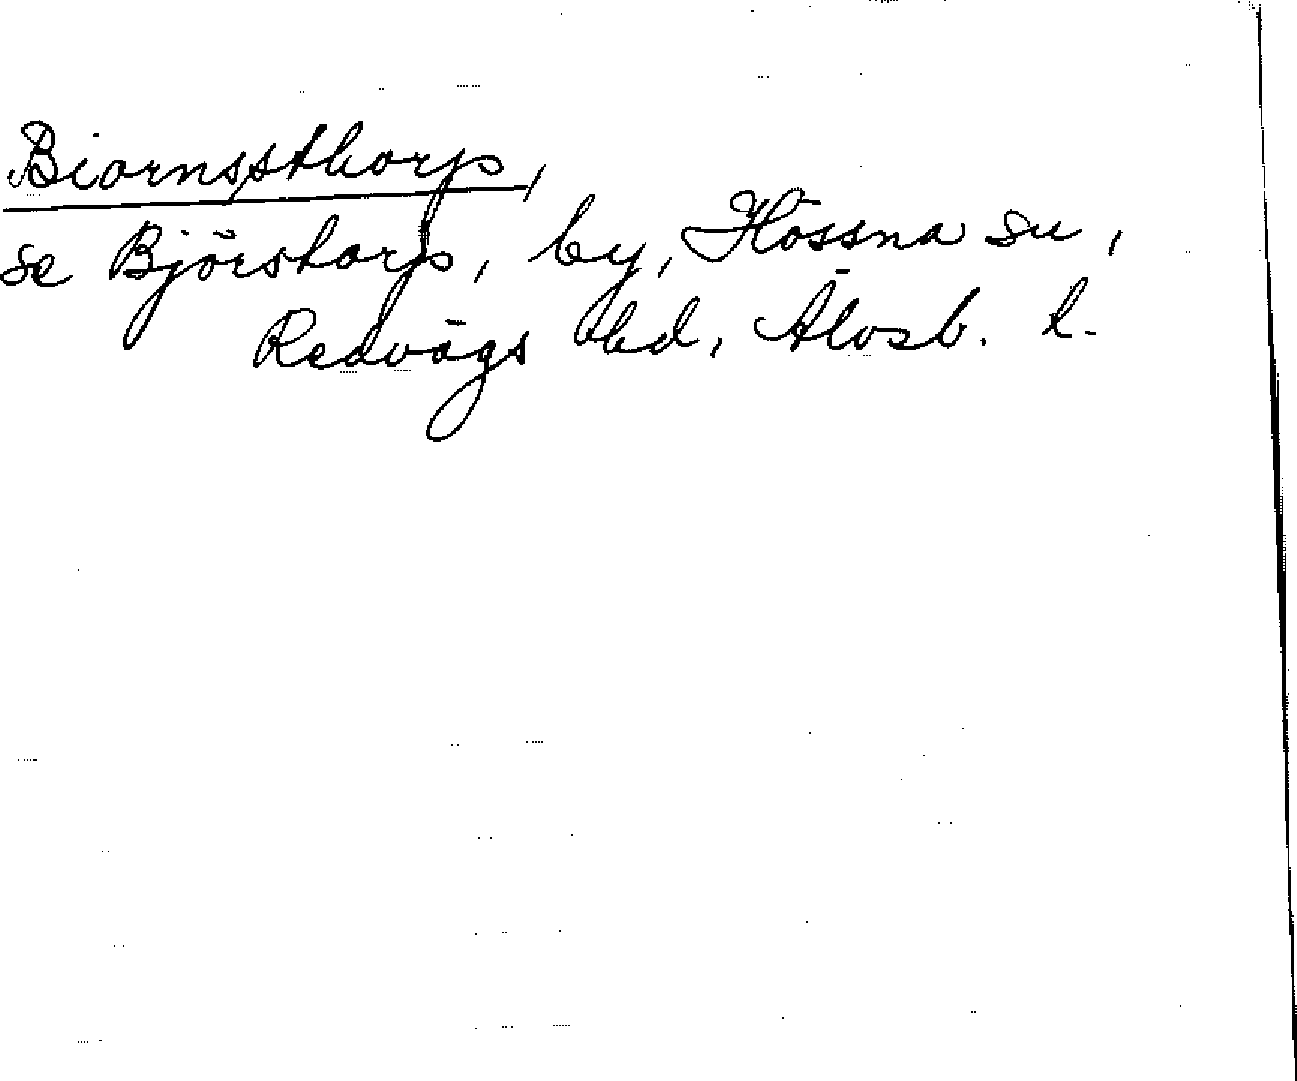 Biornssthorp,
se Björstorp, by, Hössna sn,
Redvägs hd, Älvsb. l.